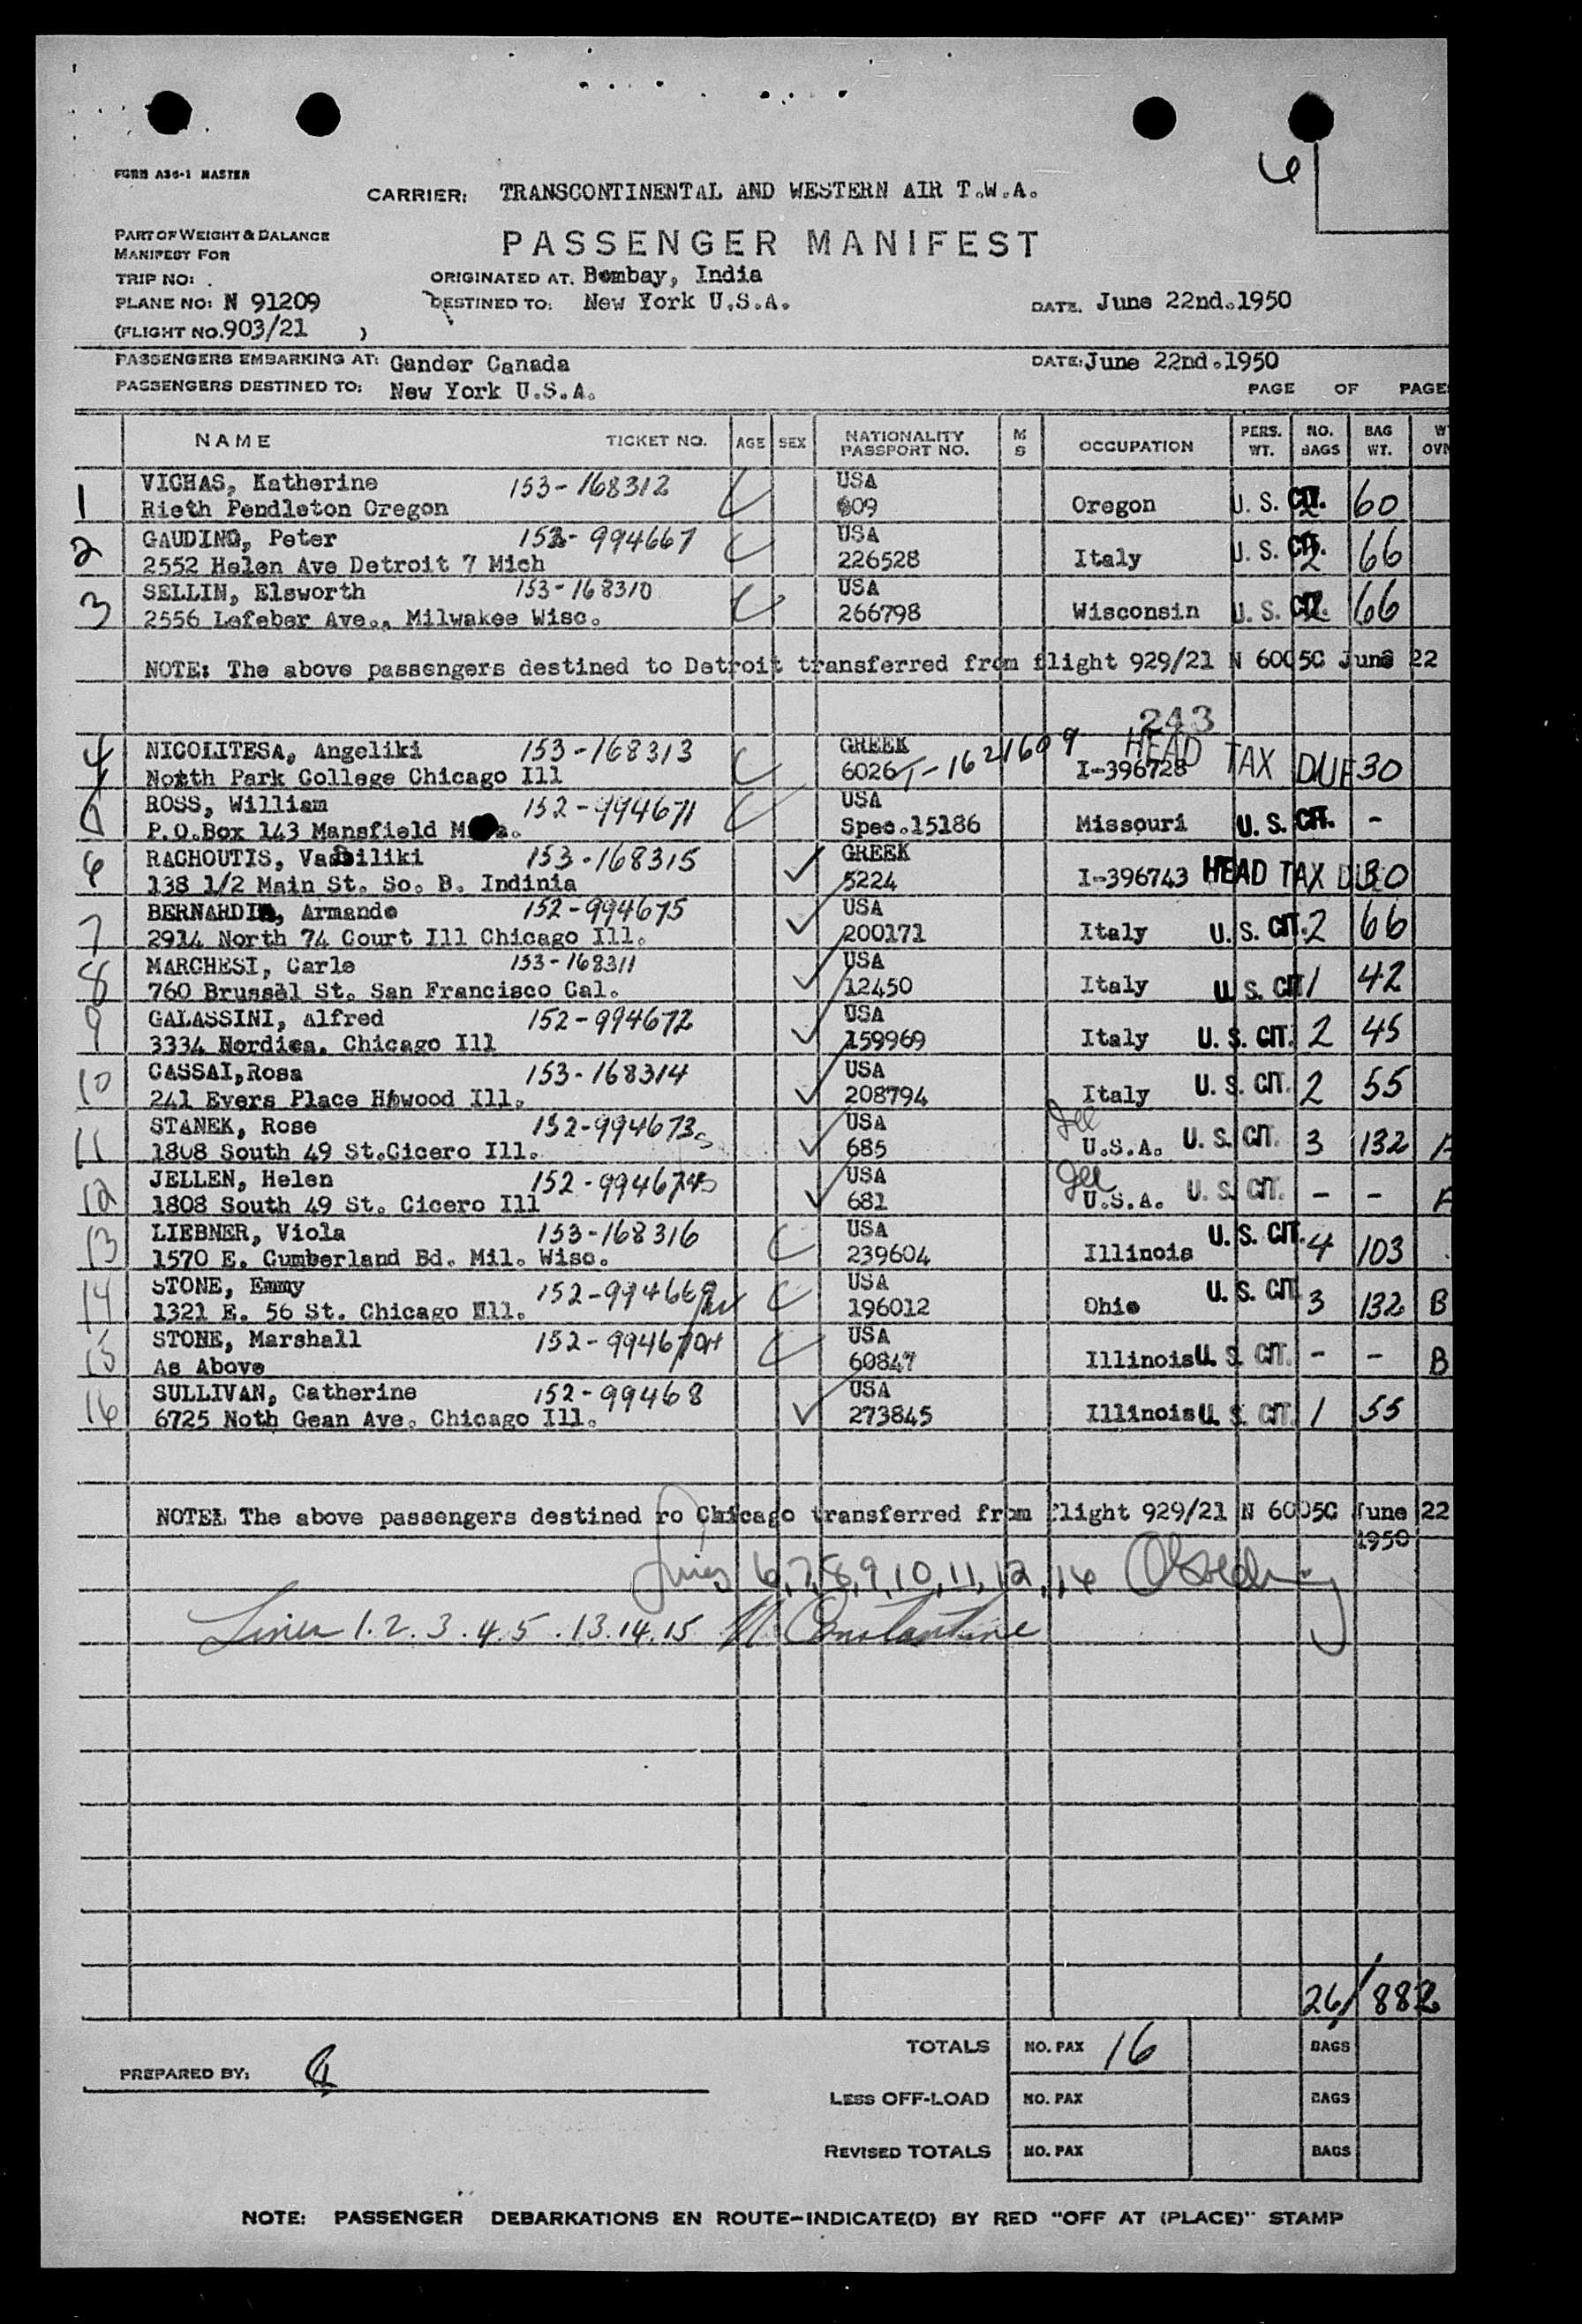 6
FORM A36-1 MASTER
CARRIER: TRANSCONTINENTAL AND WESTERN AIR T.W.A.
PART OF WEIGHT & BALANCE
MANIFEST FOR
PASSENGER MANIFEST
TRIP NO: .
ORIGINATED AT. Bombay, India
PLANE NO: N 91209
DESTINED TO: New York U.S.A.
DATE. June 22nd.1950
(FLIGHT NO.903/21 )
PASSENGERS EMBARKING AT: Gander Canada
DATE:June 22nd.1950
PASSENGERS DESTINED TO: New York U.S.A.
PAGE OF PAGE
NAME TICKET NO. AGE SEX NATIONALITY PASSPORT NO. M S OCCUPATION PERS. WT. NO. BAGS BAG WT. W OVN
VICHAS, Katherine 153-168312 USA
1 Rieth Pendleton Oregon 609 Oregon U. S. CIT. 2 60
GAUDINO, Peter 152-994667 USA
2 2552 Helen Ave Detroit 7 Mich 226528 Italy U. S. CIT. 2 66
SELLIN, Elsworth 153-168310 USA
3 2556 Lefeber Ave., Milwakee Wisc. 266798 Wisconsin U. S. CIT. 2 66
NOTE: The above passengers destined to Detroit transferred from flight 929/21 N 6005C June 22
243
4 NICOLITESA, Angeliki 153-168313 GREEK
North Park College Chicago Ill 6026 T-1621609 I-396728 HEAD TAX DUE 30
5 ROSS, William 152-994671 USA
P.O.Box 143 Mansfield Spec.15186 Missouri U. S. CIT. -
6 RACHOUTIS, Vassiliki 153-168315 GREEK
138 1/2 Main St. So. B. Indinia 5224 I-396743 HEAD TAX DUE 30
BERNARDI, Armando 152-994675 USA
7 2914 North 74 Court Ill Chicago Ill. 200171 Italy U. S. CIT. 2 66
MARCHESI, Carlo 153-168311 USA
8 760 Brussel St. San Francisco Cal. 12450 Italy U. S. CIT 1 42
GALASSINI, Alfred 152-994672 USA
9 3334 Nordica. Chicago Ill 159969 Italy U. S. CIT. 2 45
CASSAI,Rosa 153-168314 USA
10 241 Evers Place Howood Ill. 208794 Italy U. S. CIT. 2 55
STANEK, Rose 152-994673 USA
11 1808 South 49 St.Cicero Ill. 685 Ill U.S.A. U. S. CIT. 3 132 A
JELLEN, Helen 152-994674 USA
12 1808 South 49 St. Cicero Ill 681 Ill U.S.A. U. S. CIT. - - A
LIEBNER, Viola 153-168316 USA
13 1570 E. Cumberland Bd. Mil. Wisc. 239604 Illinois U. S. CIT. 4 103
STONE, Emmy 152-994669 USA
14 1321 E. 56 St. Chicago Ill. 196012 Ohio U. S. CIT 3 132 B
STONE, Marshall 152-994670 USA
15 As Above 60847 Illinois U. S. CIT. - - B
SULLIVAN, Catherine 152-99468 USA
16 6725 Noth Gean Ave. Chicago Ill. 273845 Illinois U. S. CIT. 1 55
NOTE: The above passengers destined ro Chicago transferred from flight 929/21 N 6005C June 22
1950
Lines 6,7,8,9,10,11,12,16
Lines 1.2.3.4.5.13.14.15 M Constantine
26/ 882
TOTALS NO. PAX 16 BAGS
PREPARED BY:
LESS OFF-LOAD NO. PAX BAGS
REVISED TOTALS NO. PAX BAGS
NOTE: PASSENGER DEBARKATIONS EN ROUTE-INDICATE(D) BY RED "OFF AT (PLACE)" STAMP